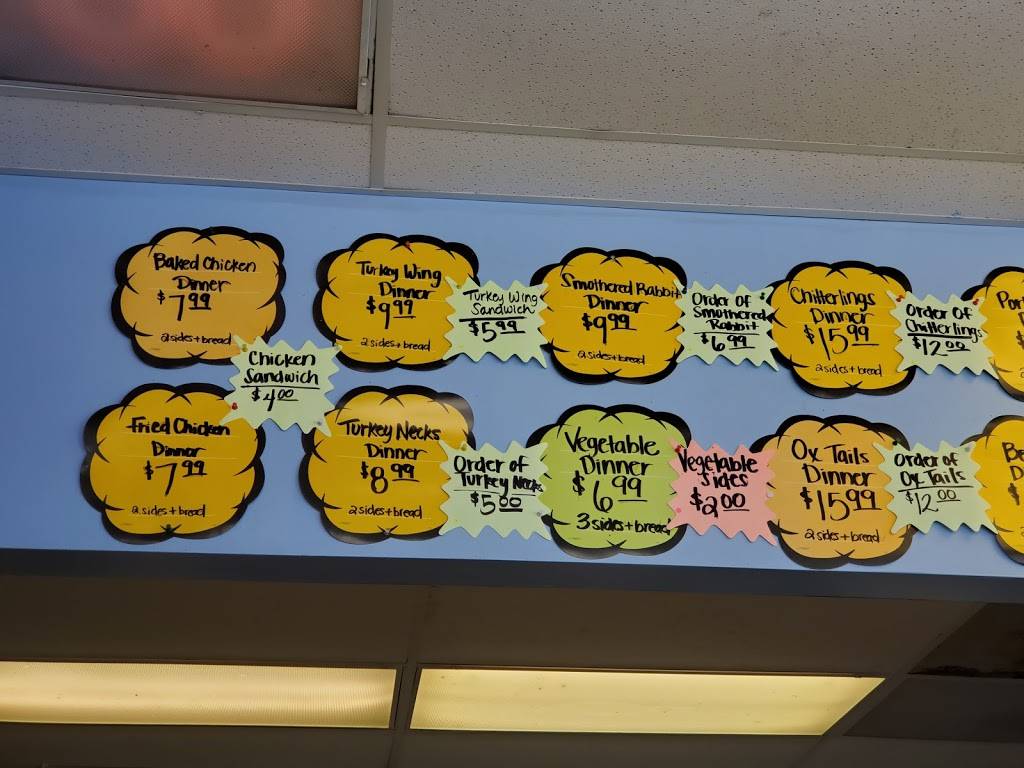 Baked Chicken
Dinner
$7.99
2 sides + bread
Turkey Wing
Dinner
$9.99
2 sides + bread
Turkey Wing
Sandwich
$5.99
Smothered Rabbit
Dinner
$9.99
2 sides + bread
Order of
Smothered
Rabbit
$6.99
Chitterlings
Dinner
$15.99
2 sides + bread
Order Of
Chitterlings
$12.00
Chicken
Sandwich
$4.00
Fried Chicken
Dinner
$7.99
2 sides + bread
Turkey Necks
Dinner
$8.99
2 sides + bread
Order of
Turkey Necks
$5.00
Vegetable
Dinner
$6.99
3 sides + bread
Vegetable
Sides
$2.00
Ox Tails
Dinner
$15.99
2 sides + bread
Order of
Ox Tails
$12.00